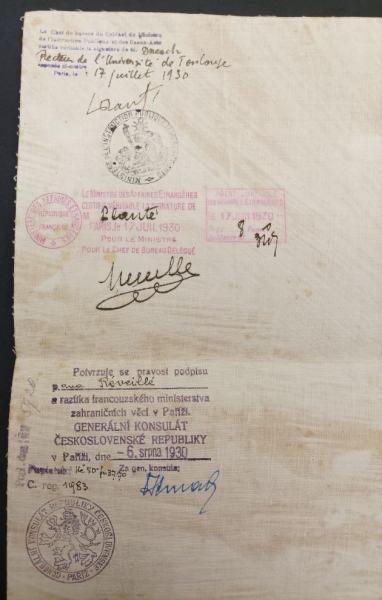 Le Chef du bureau du Cabinet du Ministre
de l'Instruction Publique et des Beaux-Arts
certifie véritable la signature de M. Dresch
Recteur de l'Université de Toulouse
apposée ci-contre
Paris, le 17 juillet 1930
LE MINISTRE DES AFFAIRES ETRANGÈRES
CERTIFIE VÉRITABLE LA SIGNATURE DE
M Planté
PARIS, le 17 JUIL 1930
POUR LE MINISTRE
POUR LE CHEF DE BUREAU DÉLÉGUÉ
RÉPUBLIQUE
FRANÇAISE
MINISTÈRE DES AFFAIRES ETRANGÈRES
LE 17 JUIL 1930
Réveillé
Potvrzuje se pravost podpisu
pana Réveillé
a razítka francouzského ministerstva
zahraničních věcí v Paříži.
GENERÁLNÍ KONSULÁT
ČESKOSLOVENSKÉ REPUBLIKY
v Paříži, dne - 6. srpna 1930
Za gen. konsula:
C. reg. 1983
GENERÁLNÍ KONSULÁT REPUBLIKY ČESKOSLOVENSKÉ
PAŘÍŽ